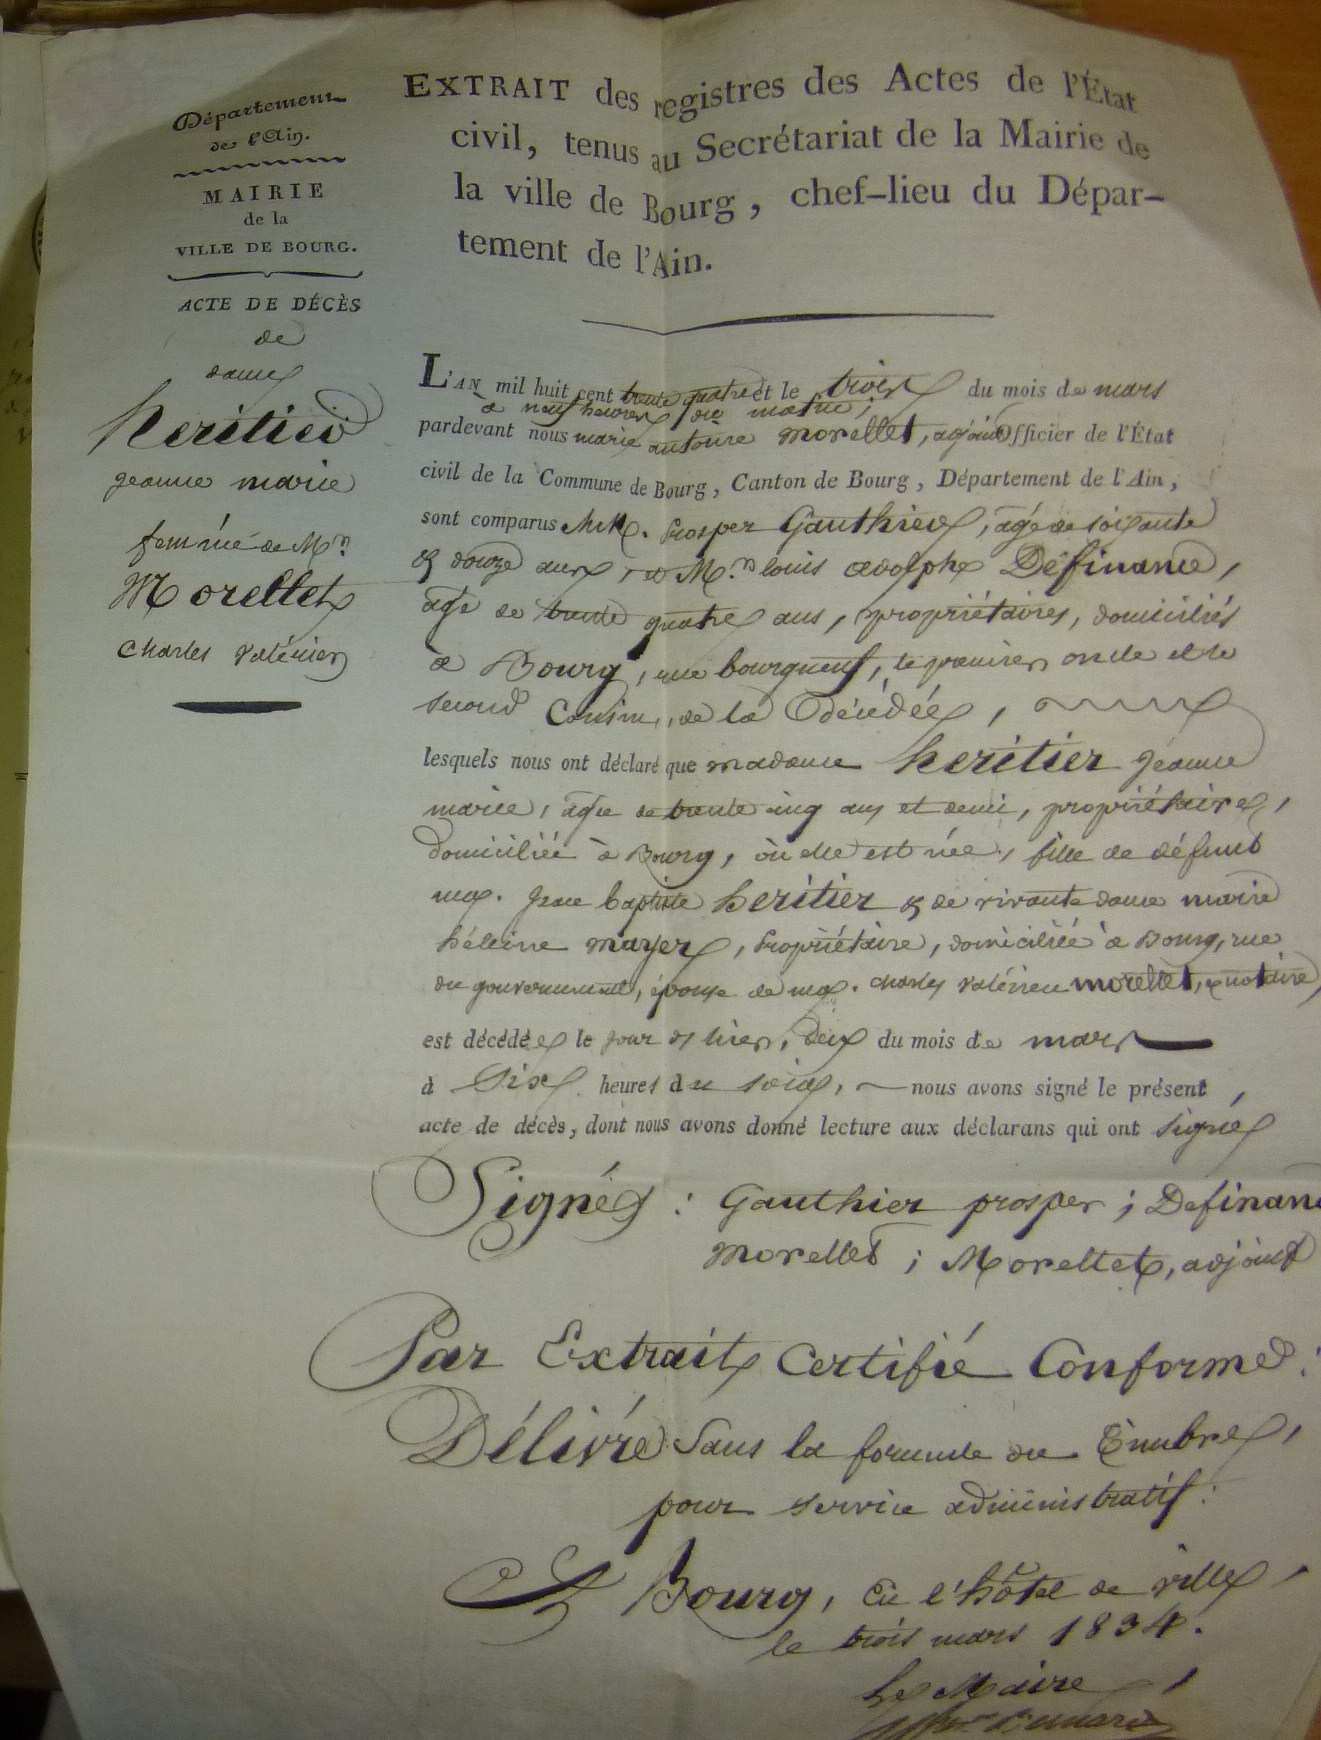 Département
de l'Ain.
MAIRIE
de la
VILLE DE BOURG.
ACTE DE DÉCÈS
de
dame
heritier
jeanne marie
femme de Mr
Morellet
Charles Valérien
EXTRAIT des registres des Actes de l'État
civil, tenus au Secrétariat de la Mairie de
la ville de Bourg, chef-lieu du Dépar-
tement de l'Ain.
L'AN mil huit cent trente quatre et le trois du mois de mars
à neuf heures du matin;
pardevant nous marie antoine morellet, adjoint Officier de l'État
civil de la Commune de Bourg, Canton de Bourg, Département de l'Ain,
sont comparus MM. prosper Gauthier, âgé de soixante
& douze ans, et Mr. louis adolphe Définance,
âgé de trente quatre ans, propriétaires, domiciliés
à Bourg, rue bourgneuf, le premier oncle et le
second Cousin, de la Décédée,
lesquels nous ont déclaré que madame heritier jeanne
marie, âgée de trente cinq ans et demi, propriétaire,
domiciliée à Bourg, où elle est née, fille de défunt
jean baptiste heritier & de vivante dame marie
hélène mayer, propriétaire, domiciliée à Bourg, rue
du gouvernement, épouse de charles valérien morellet, notaire,
est décédée le jour d'hier, deux du mois de mars
à Six heures du soir, nous avons signé le présent
acte de décès, dont nous avons donné lecture aux déclarans qui ont signé
Signés : Gauthier prosper ; Definance
morellet ; Morellet, adjoint
Par Extrait Certifié Conforme :
Délivré Sans la formule du Timbre,
pour service administratif :
A Bourg, En l'hôtel de ville,
le trois mars 1834.
Le Maire,